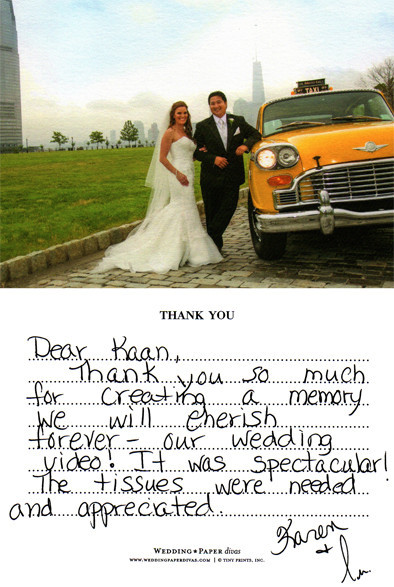 TAXI
THANK YOU
Dear Kaan,
Thank you so much
for creating a memory
we will cherish
forever - our wedding
video! It was spectacular!
The tissues were needed
and appreciated.
Karen
+
WEDDING PAPER divas
WWW.WEDDINGPAPERDIVAS.COM | © TINY PRINTS, INC.